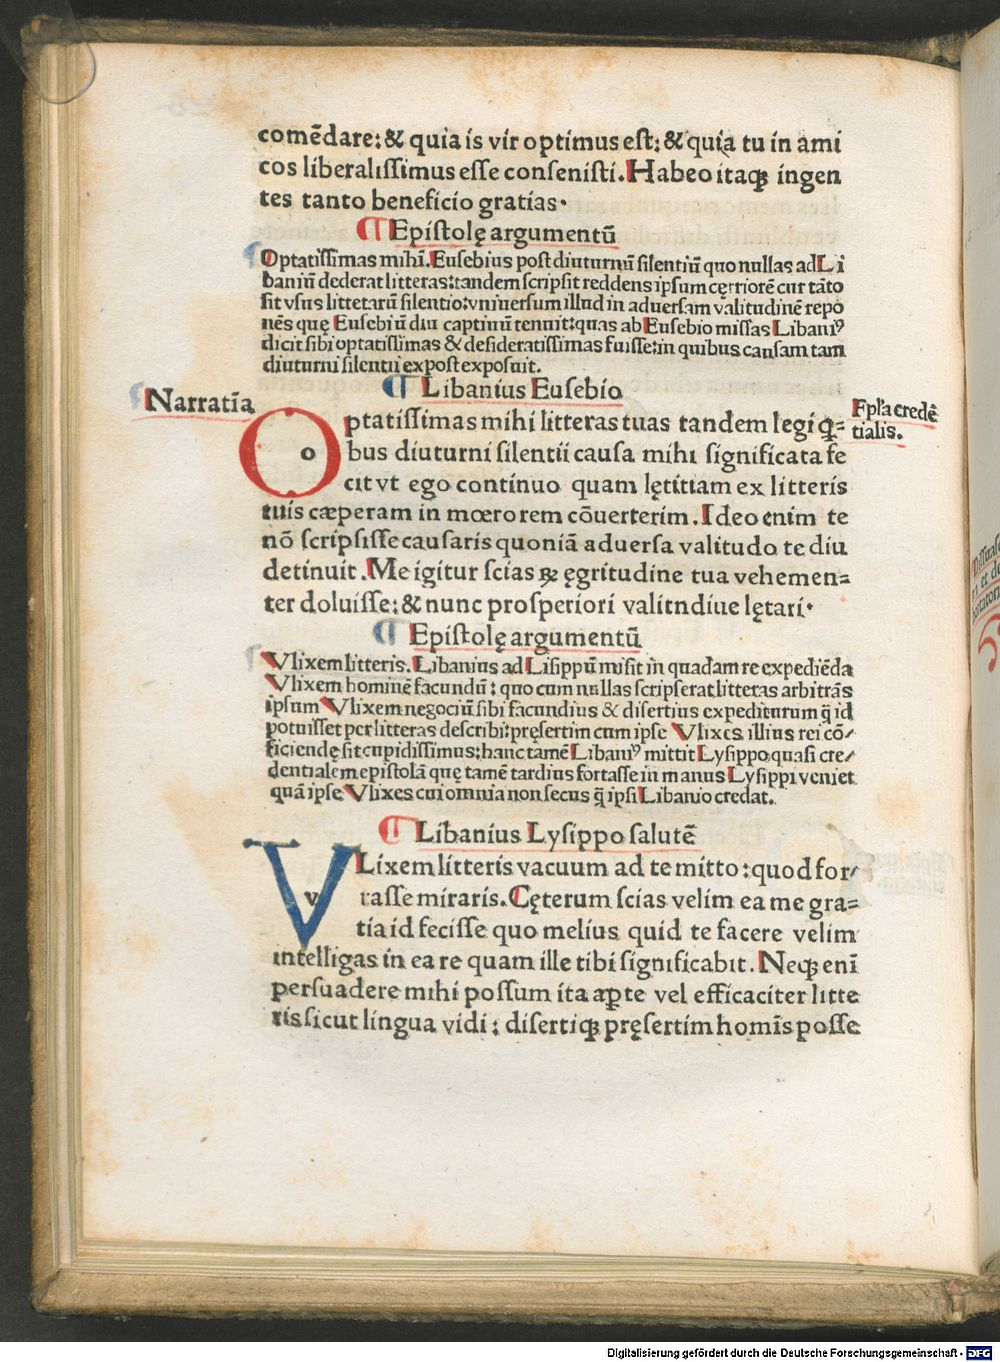 comēdare: & quia is vir optimus est: & quia tu in ami
cos liberalissimus esse consenisti. Habeo itaqꝫ ingen
tes tanto beneficio gratias.
¶ Epistolę argumentū
Optatissimas mihi. Eusebius post diuturnū silentiū quo nullas ad Li
baniū dederat litteras: tandem scripsit reddens ipsum cęrtiorē cur tāto
sit vsus littetarū silentio: vniuersum illud in aduersam valitudinē repo
nēs quę Eusebiū diu captinū tennit: quas ab Eusebio missas Libaniꝰ
dicit sibi optatissimas & desideratissimas fuisse: in quibus causam tam
diuturni silentii ex post exposuit.
¶ Libanius Eusebio
Narratīa
Optatissimas mihi litteras tuas tandem legi q̄-
Fpl'a credē
tialis.
bus diuturni silentii causa mihi significata fe
cit vt ego continuo quam lętitiam ex litteris
tuis cæperam in mœrorem cōuerterim. Ideo enim te
nō scripsisse causaris quoniā aduersa valitudo te diu
detinuit. Me igitur scias ꝓ ęgritudine tua vehemen=
ter doluisse: & nunc prosperiori valitndiue lętari.
¶ Epistolę argumentū
Vlixem litteris. Libanius ad Lisippū misit in quadam re expediēda
Vlixem hominē facundū: quo cum nullas scripserat litteras arbitrās
ipsum Vlixem negociū sibi facundius & disertius expediturum q̄ id
potuisset per litteras describi: pręsertim cum ipse Vlixes illius rei cō/
ficiendę sit cupidissimus: hanc tamē Libaniꝰ mittit Lysippo quasi cre/
dentialem epistolā quę tamē tardius fortasse in manus Lysippi veniet
quā ipse Vlixes cui omnia non secus q̄ ipsi Libanio credat.
¶ Libanius Lysippo salutē
VLixem litteris vacuum ad te mitto: quod for/
tasse miraris. Cęterum scias velim ea me gra=
tia id fecisse quo melius quid te facere velim
intelligas in ea re quam ille tibi significabit. Neqꝫ enī
persuadere mihi possum ita aꝑte vel efficaciter litte
ris sicut lingua vidi: disertiqꝫ pręsertim homīs posse
Digitalisierung gefördert durch die Deutsche Forschungsgemeinschaft - DFG